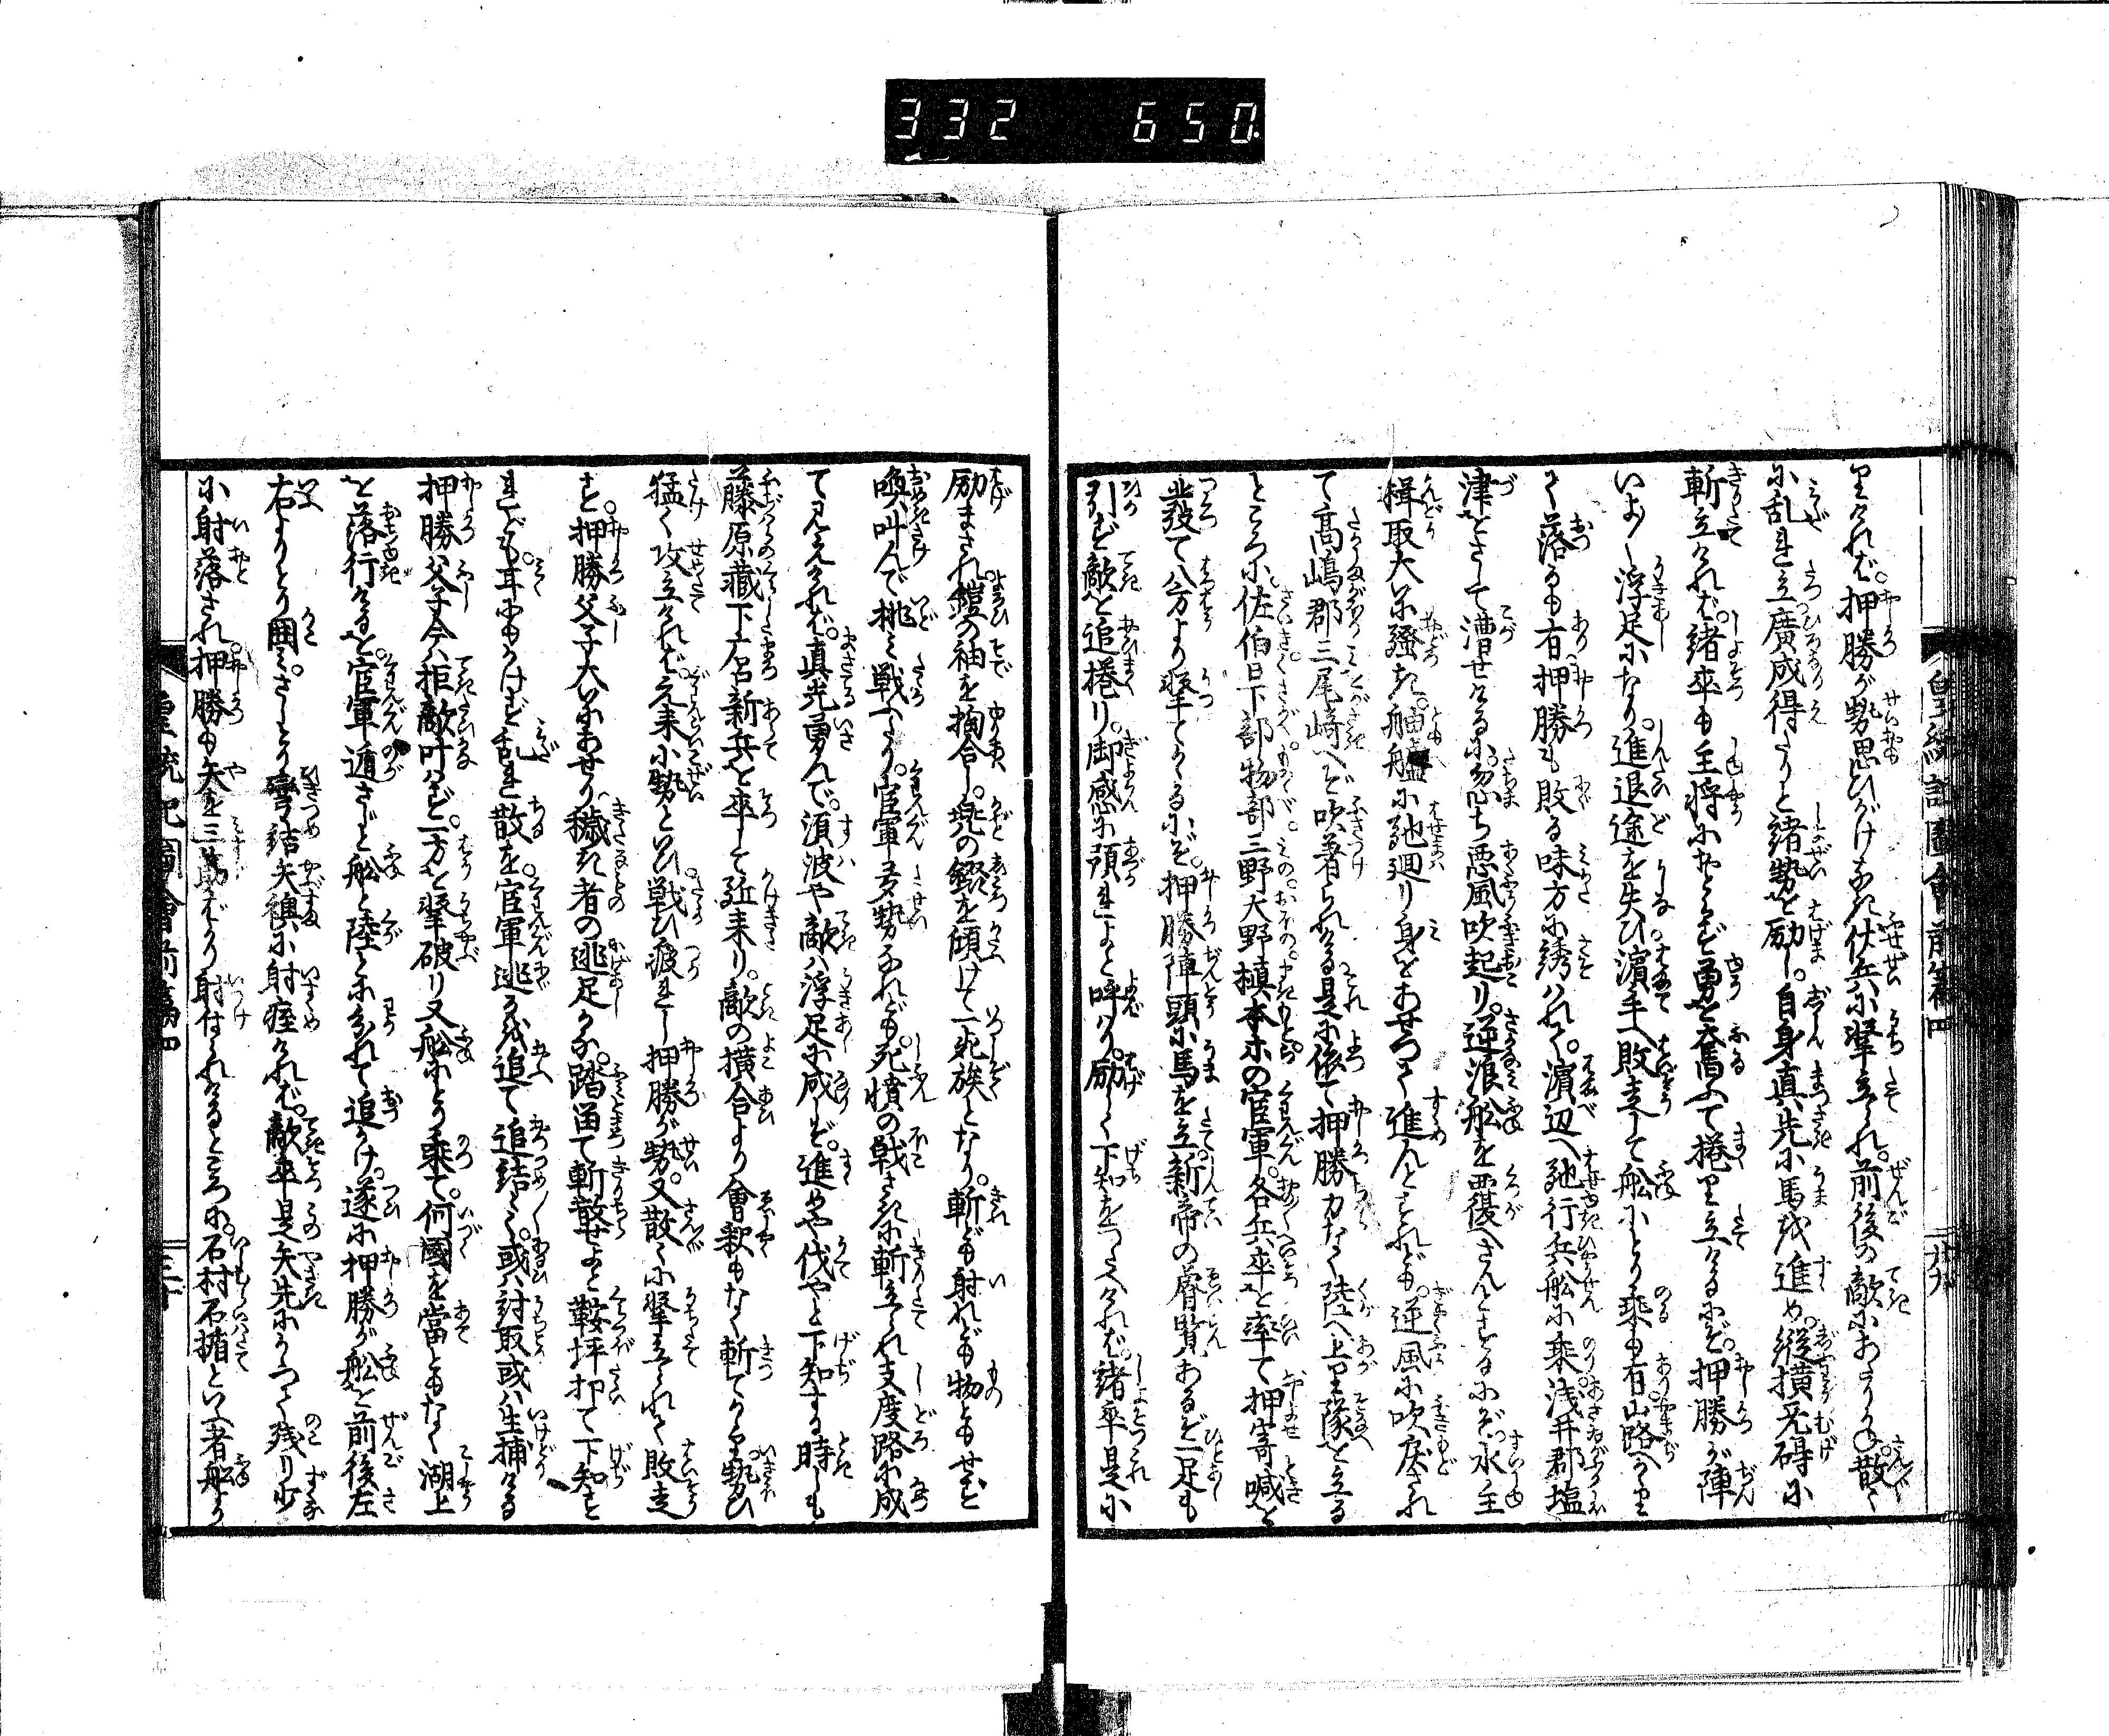 332 650
皇統記圖會前篇四
廿九
里けれバ。押勝が勢思ひがけなき伏兵に撃立られ。前後の敵にあたりかね。散〻
に乱れ立。廣成得たりと諸勢を励し。自身真先に馬を進め。縦横无碍に
斬立けれバ。諸卒も主将におとらじと勇を奮ふて捲り立けるにぞ。押勝が陣
いよ〳〵浮足になり。進退途を失ひ濱手へ敗走して舩にとり乗も有。山路へかゝり
て落るも有。押勝も敗る味方に誘ハれて。濱辺へ馳行兵舩に乗。浅井郡塩
津をさして漕せけるに。忽ち悪風吹起り。逆浪舩を覆へさんとするにぞ。水主
楫取大に騒ぎ。舳艫に馳廻り身をあせつて進んとすれども。逆風に吹戻され
て高嶋郡三尾崎へぞ吹着られける。是に依て押勝力なく陸へ上り隊を立る
ところに。佐伯日下部物部三野大野槙本等の官軍。各兵卒を率て押寄喊を
發て八方より撃てかゝるにぞ。押勝陣頭に馬を立。新帝の睿覧あるぞ一足も
引ず敵を追捲り。御感に預れよと呼ハり。励しく下知をつたへけれバ。諸卒是に
励まされ。鎧の袖を揺合し。兜の錣を傾けて一死族となり。斬ども射れども物ともせず
喚叫んで挑ミ戦へたり。官軍多勢なれども。死憤の戦ひに斬立られ支度路に成
て見えけれバ。真光勇んで。須波や敵ハ浮足に成しぞ。進めや伐やと下知する時しも
藤原蔵下广呂新兵を卒して近来り。敵の横合より會釈もなく斬てかゝり勢ひ
猛く攻立けれバ。元来小勢といひ。戦ひ疲れし押勝が勢。又散〻に撃立られて敗走
す。押勝父子大にあせり。穢き者の逃足かな。踏留て斬散せよと鞍坪打て下知を
すれども。耳にもかけず乱れ散を。官軍逃るを追て追詰〻〻。或ハ討取或ハ生捕ける
押勝父子今ハ拒敵叶ハず。一方を撃破り又舩にとり乗て。何國を當ともなく湖上
を落行けるを。官軍遁さじと舩と陸とにわかれて追かけ。遂に押勝が舩を前後左
右よりとり囲ミ。さしとり彎結矢襖に射痓けれバ。敵卒是矢先にかゝつて残り少
に射落され。押勝も矢を三筋ばかり射付られけるところに。石村石楯といふ者舩より
皇統記圖會前篇四
三十